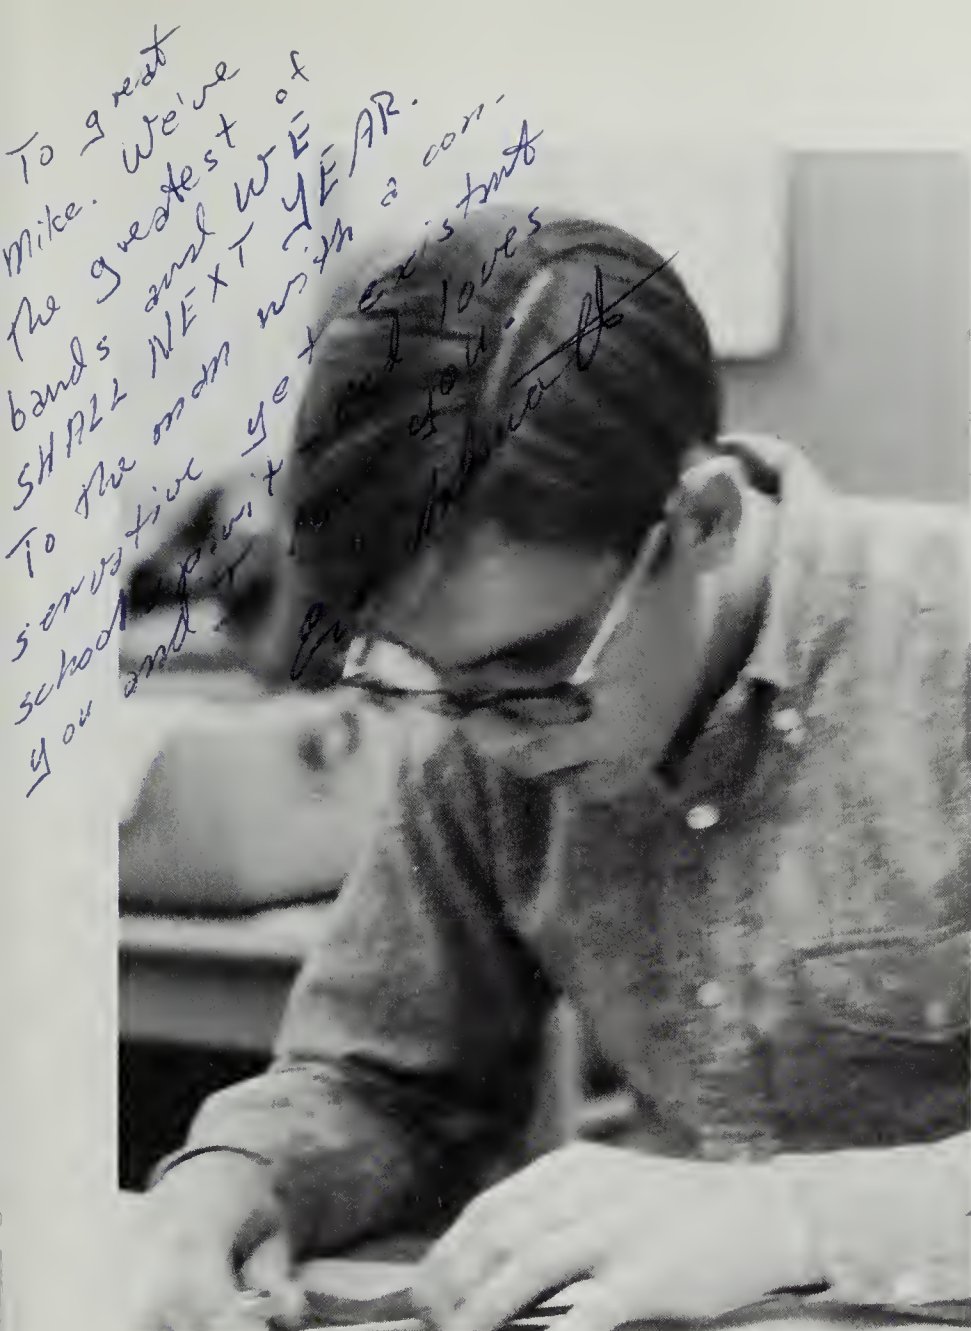 To great
mike. We've
the greatest of
bands and WE
SHALL NEXT YEAR.
To the man with a con-
servative yet existant
school spirit and loves
you and it you.